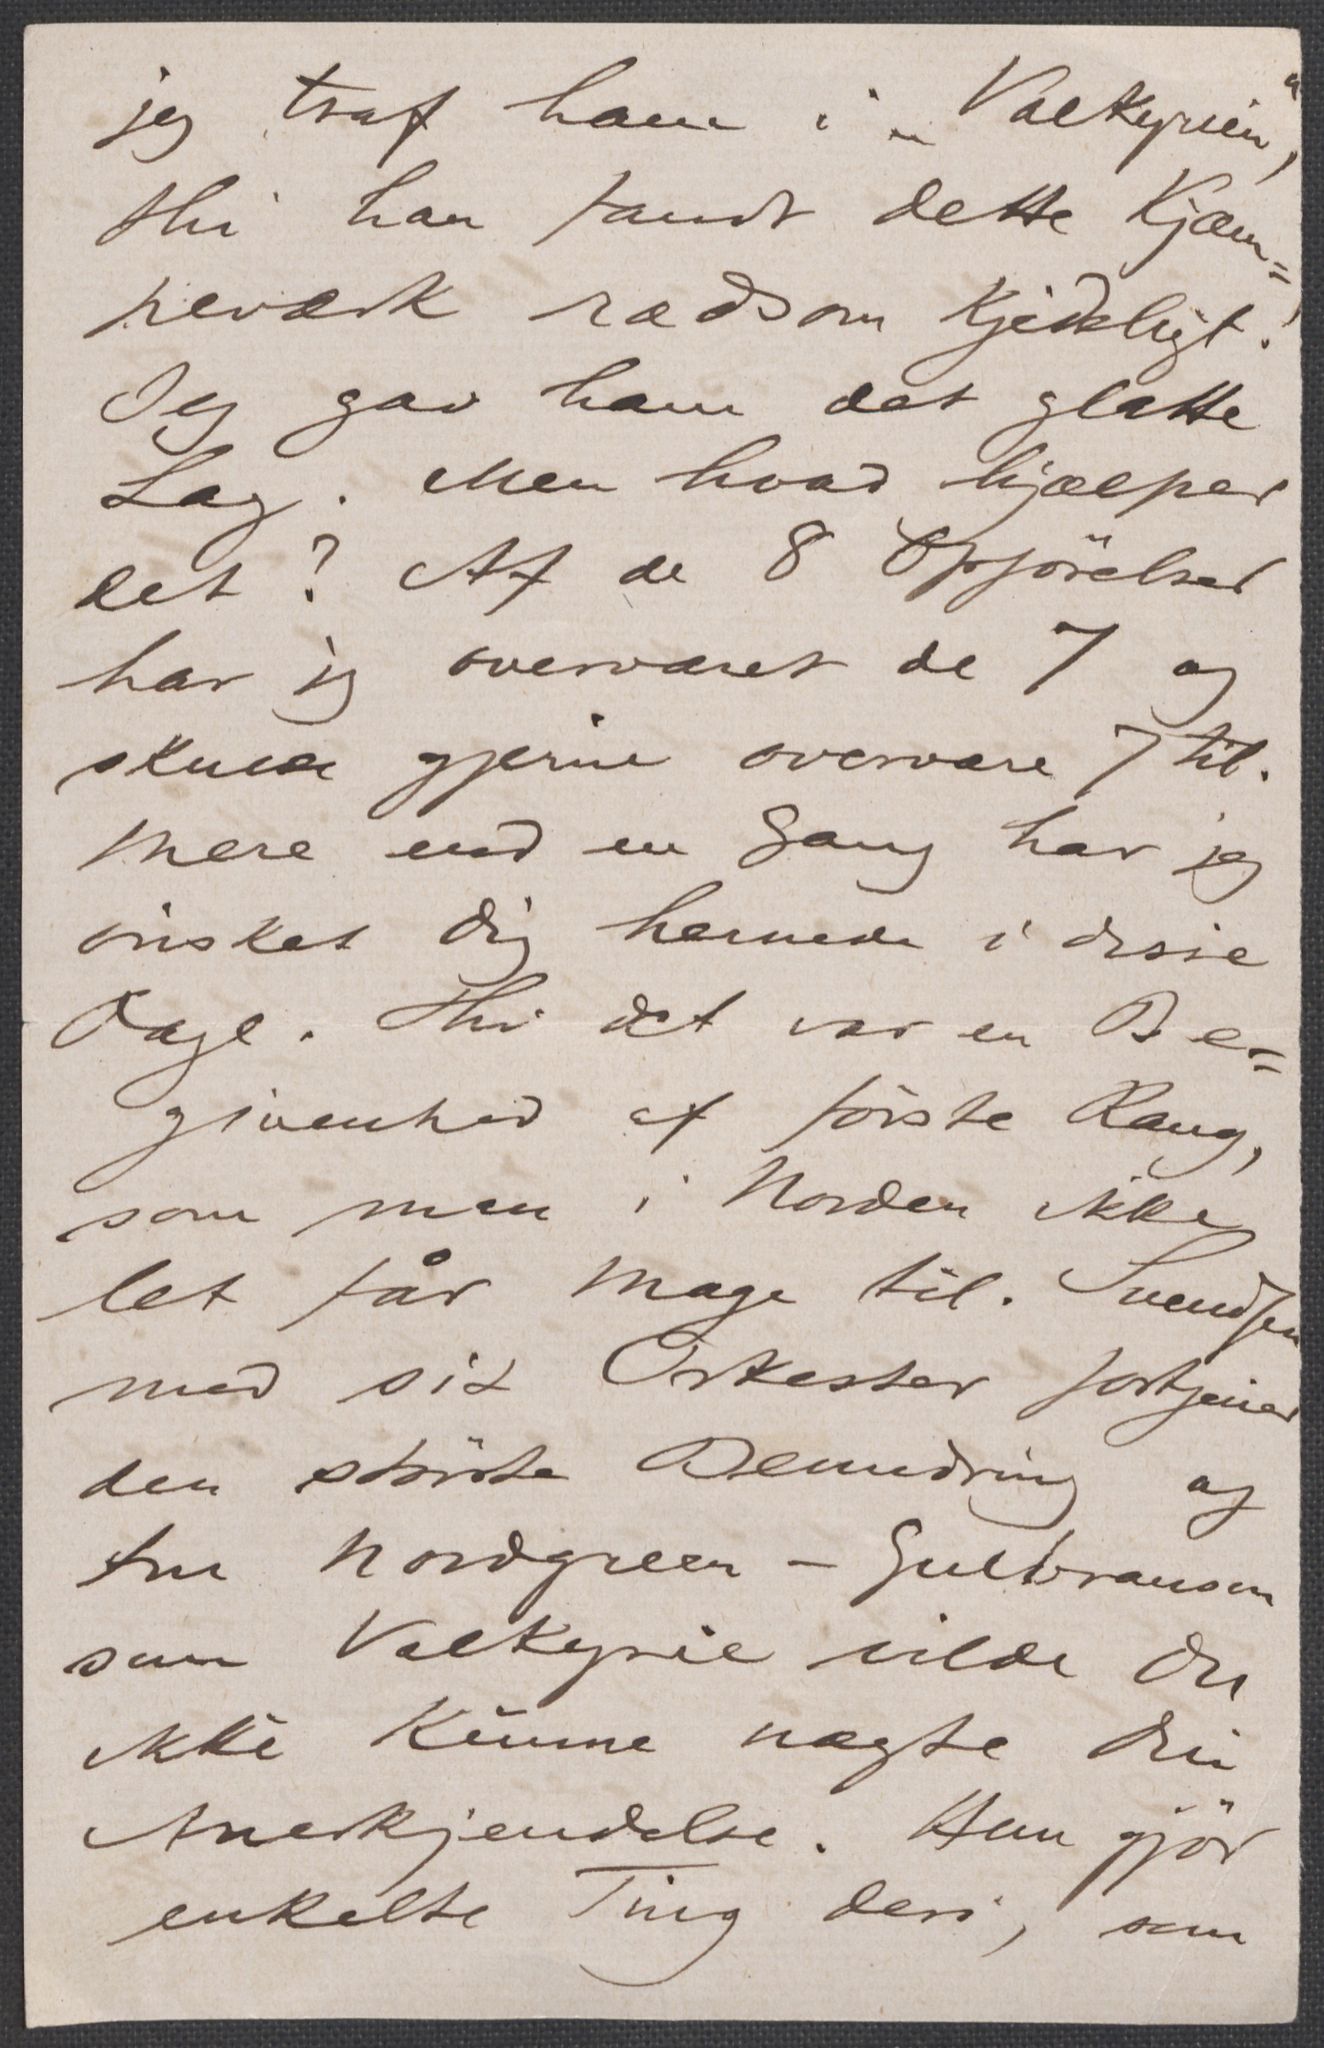 jeg traf ham i „Valkyrien“,
thi han fandt dette Kjæm=
peværk rædsom kjedeligt!
Jeg gav ham det glatte
Lag. Men hvad hjælper
det? Af de 8 Opførelser
har jeg overværet de 7 og
skulde gjerne overvære 7 til.
Mere end en Gang har jeg
ønsket Dig hernede i disse
Dage. Thi det var en Be=
givenhed af første Rang,
som man i Norden ikke
let får Mage til. Svendsen
med sit Orkester fortjener
den største Beundring og
Fru Nordgreen – Gulbranson
som Valkyrie vilde Du
ikke kunne nægte Din
Anerkjendelse. Hun gjör
enkelte Ting deri, som